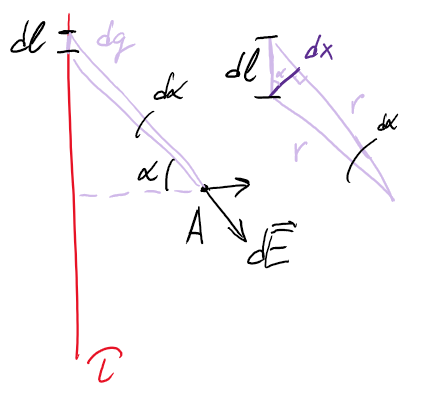 dl
dq
dα
α
A
dE⃗
τ
dl
dx
α
r
r
dα